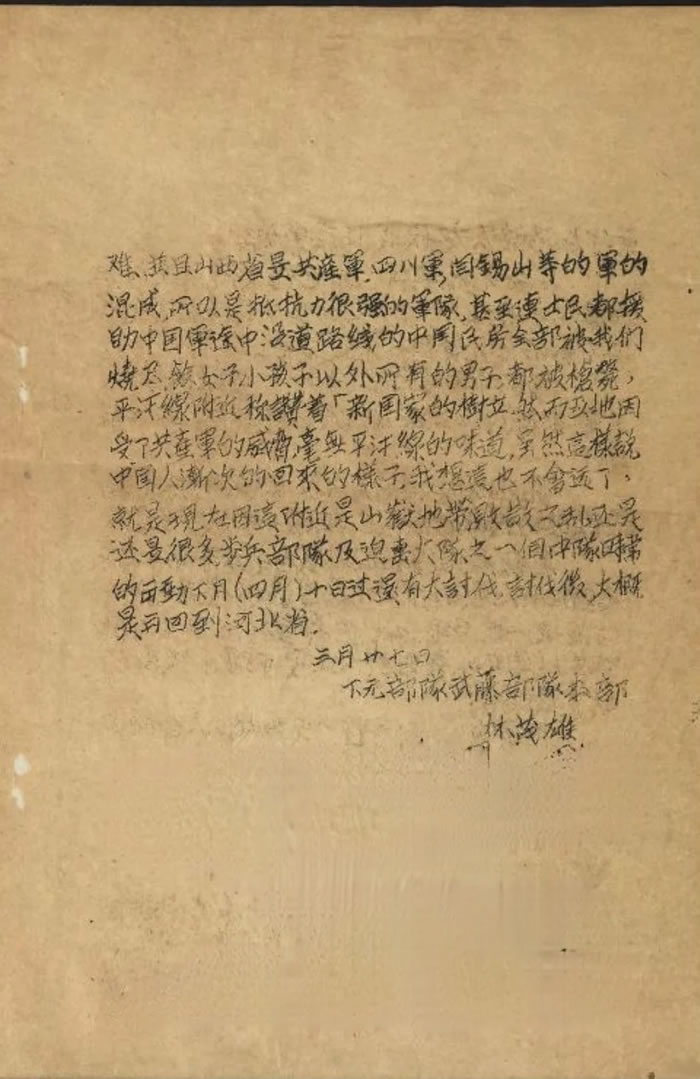 难、並且山西省是共產軍、四川軍、閻錫山等的軍的
混成、所以是抵抗力很强的軍隊、甚至連士民都援
助中国軍途中沒道路綫的中国民房全部被我们
燒尽、女子小孩子以外所有的男子都被槍斃，
平汗線附近称讚着「新国家的樹立、然而此地因
受了共產軍的威脅、毫無平汗線的味道、虽然這樣說
中国人漸次的回來的樣子、我想這也不會远了，
就是现在因這附近是山嶽地帶敗敵
还是很多步兵部隊及迫击大隊之一個中隊
的行動下月(四月)十日过還有大討伐、討伐後、大概
是再回到河北省.
三月廿七日
下元部隊武藤部隊本部
林茂雄